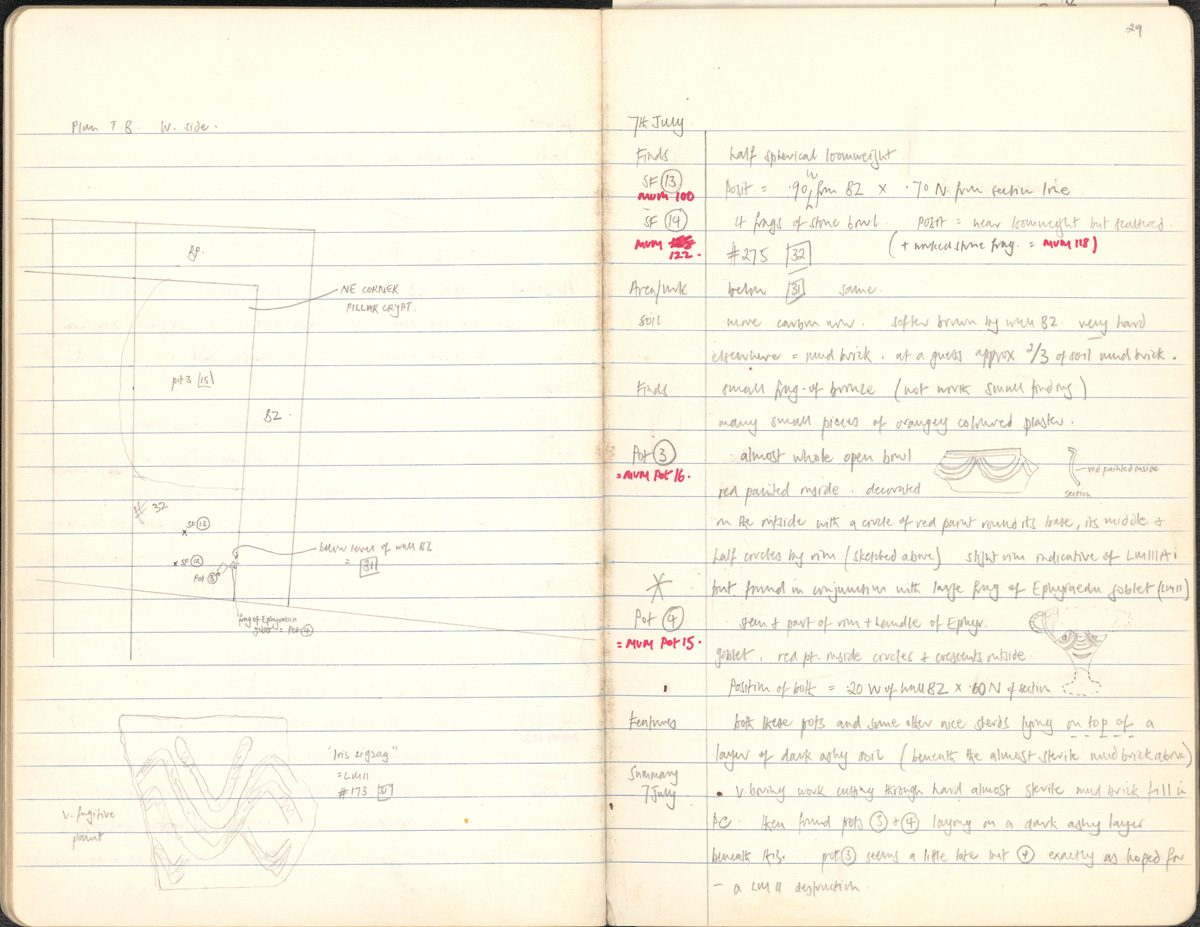 Plan T.B. W. side.
BP.
NE CORNER
PILLAR CRYPT.
pit 3 [15]
BZ.
# 32
x SF (13)
x SF (12)
Pot (3)
below level of wall BZ
= [31]
frag of Ephyraean
goblet = Pot (4)
"Iris zigzag"
= LMII
#173
v. fugitive
paint
29
7th July
Finds half spherical loomweight
SF (13) Posit = .90 W from BZ x .70 N. from section line
MUM 100
SF (14) 4 frags of stone bowl. Posit = near loomweight but scattered.
MUM 122. (+ worked stone frag. = MUM 118)
#275 [32]
Area/wk below [31] same.
Soil more carbon now. softer brown by wall BZ very hard
elsewhere = mud brick. at a guess approx 2/3 of soil mud brick.
Finds small frag. of bronze (not worth small finding)
many small pieces of orangey coloured plaster.
Pot (3) almost whole open bowl
= MUM Pot 16. red painted inside. decorated
red painted inside
section
on the outside with a circle of red paint round its base, its middle +
half circles by rim (sketched above) slight rim indicative of LMIIIA1
but found in conjunction with large frag of Ephyraean goblet (LMII)
Pot (4) stem + part of rim + handle of Ephyr.
= MUM Pot 15. goblet. red pt. inside circles + crescents outside.
Position of both = .20 W of wall BZ x .60 N of section
Features both these pots and some other nice sherds lying on top of a
layer of dark ashy soil (beneath the almost sterile mud brick above)
Summary
7 July • v boring work cutting through hard almost sterile mud brick fill in
PC. then found pots (3) + (4) laying on a dark ashy layer
beneath this. pot (3) seems a little late but (4) exactly as hoped for
– a LMII destruction.